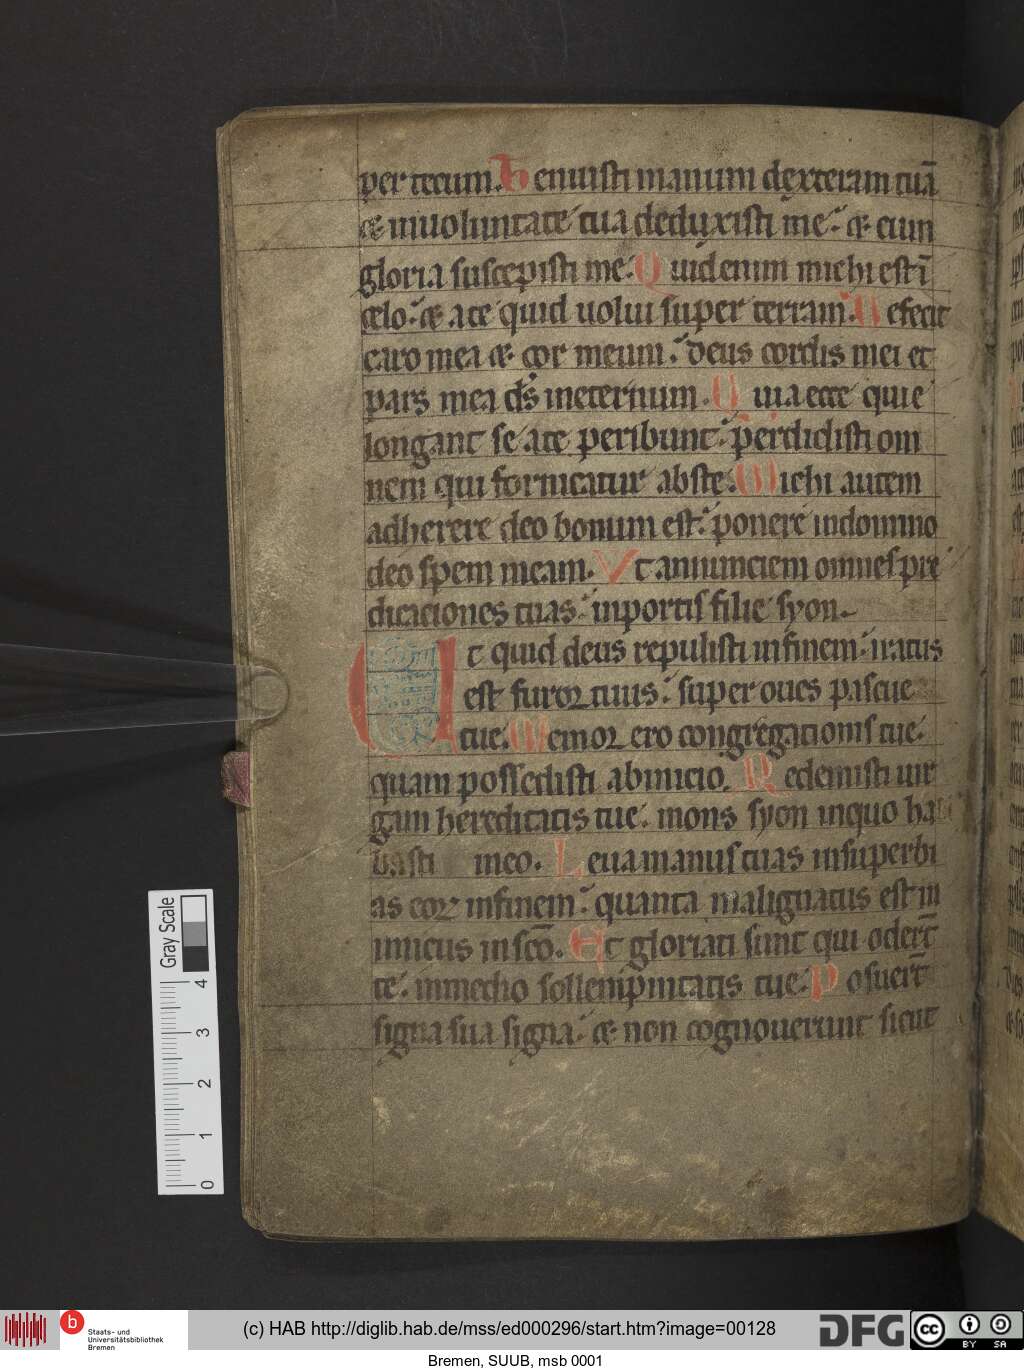 per tecum. Tenuisti manum dexteram tuā
& inuoluntate tua deduxisti me: & cum
gloria suscepisti me. Quid enim michi est ī
celo: & a te quid uolui super terram. Defecit
caro mea & cor meum: deus cordis mei et
pars mea ds ineternum. Quia ecce qui e
longant se a te peribunt: perdidisti om
nem qui fornicatur abs te. Michi autem
adherere deo bonum est: ponere in domino
deo spem meam. Vt annunciem omnes pre
dicaciones tuas: inportis filie syon.
Ut quid deus repulisti infinem: iratus
est furor tuus: super oues pascue
tue. Memor ero congregacionis tue:
quam possedisti abinicio. Redemisti uir
gam hereditatis tue: mons syon inquo ha
basti meo. Leua manus tuas insuperbi
as eor infinem: quanta malignatus est in
imicus in scō. Et gloriati sunt qui oderūt
te: inmedio sollempnitatis tue. Posuerūt
signa sua signa: & non cognouerunt sicut
Gray Scale
4
3
2
1
0
b
Staats- und
Universitätsbibliothek
Bremen
(c) HAB http://diglib.hab.de/mss/ed000296/start.htm?image=00128
DFG
cc
BY SA
Bremen, SUUB, msb 0001